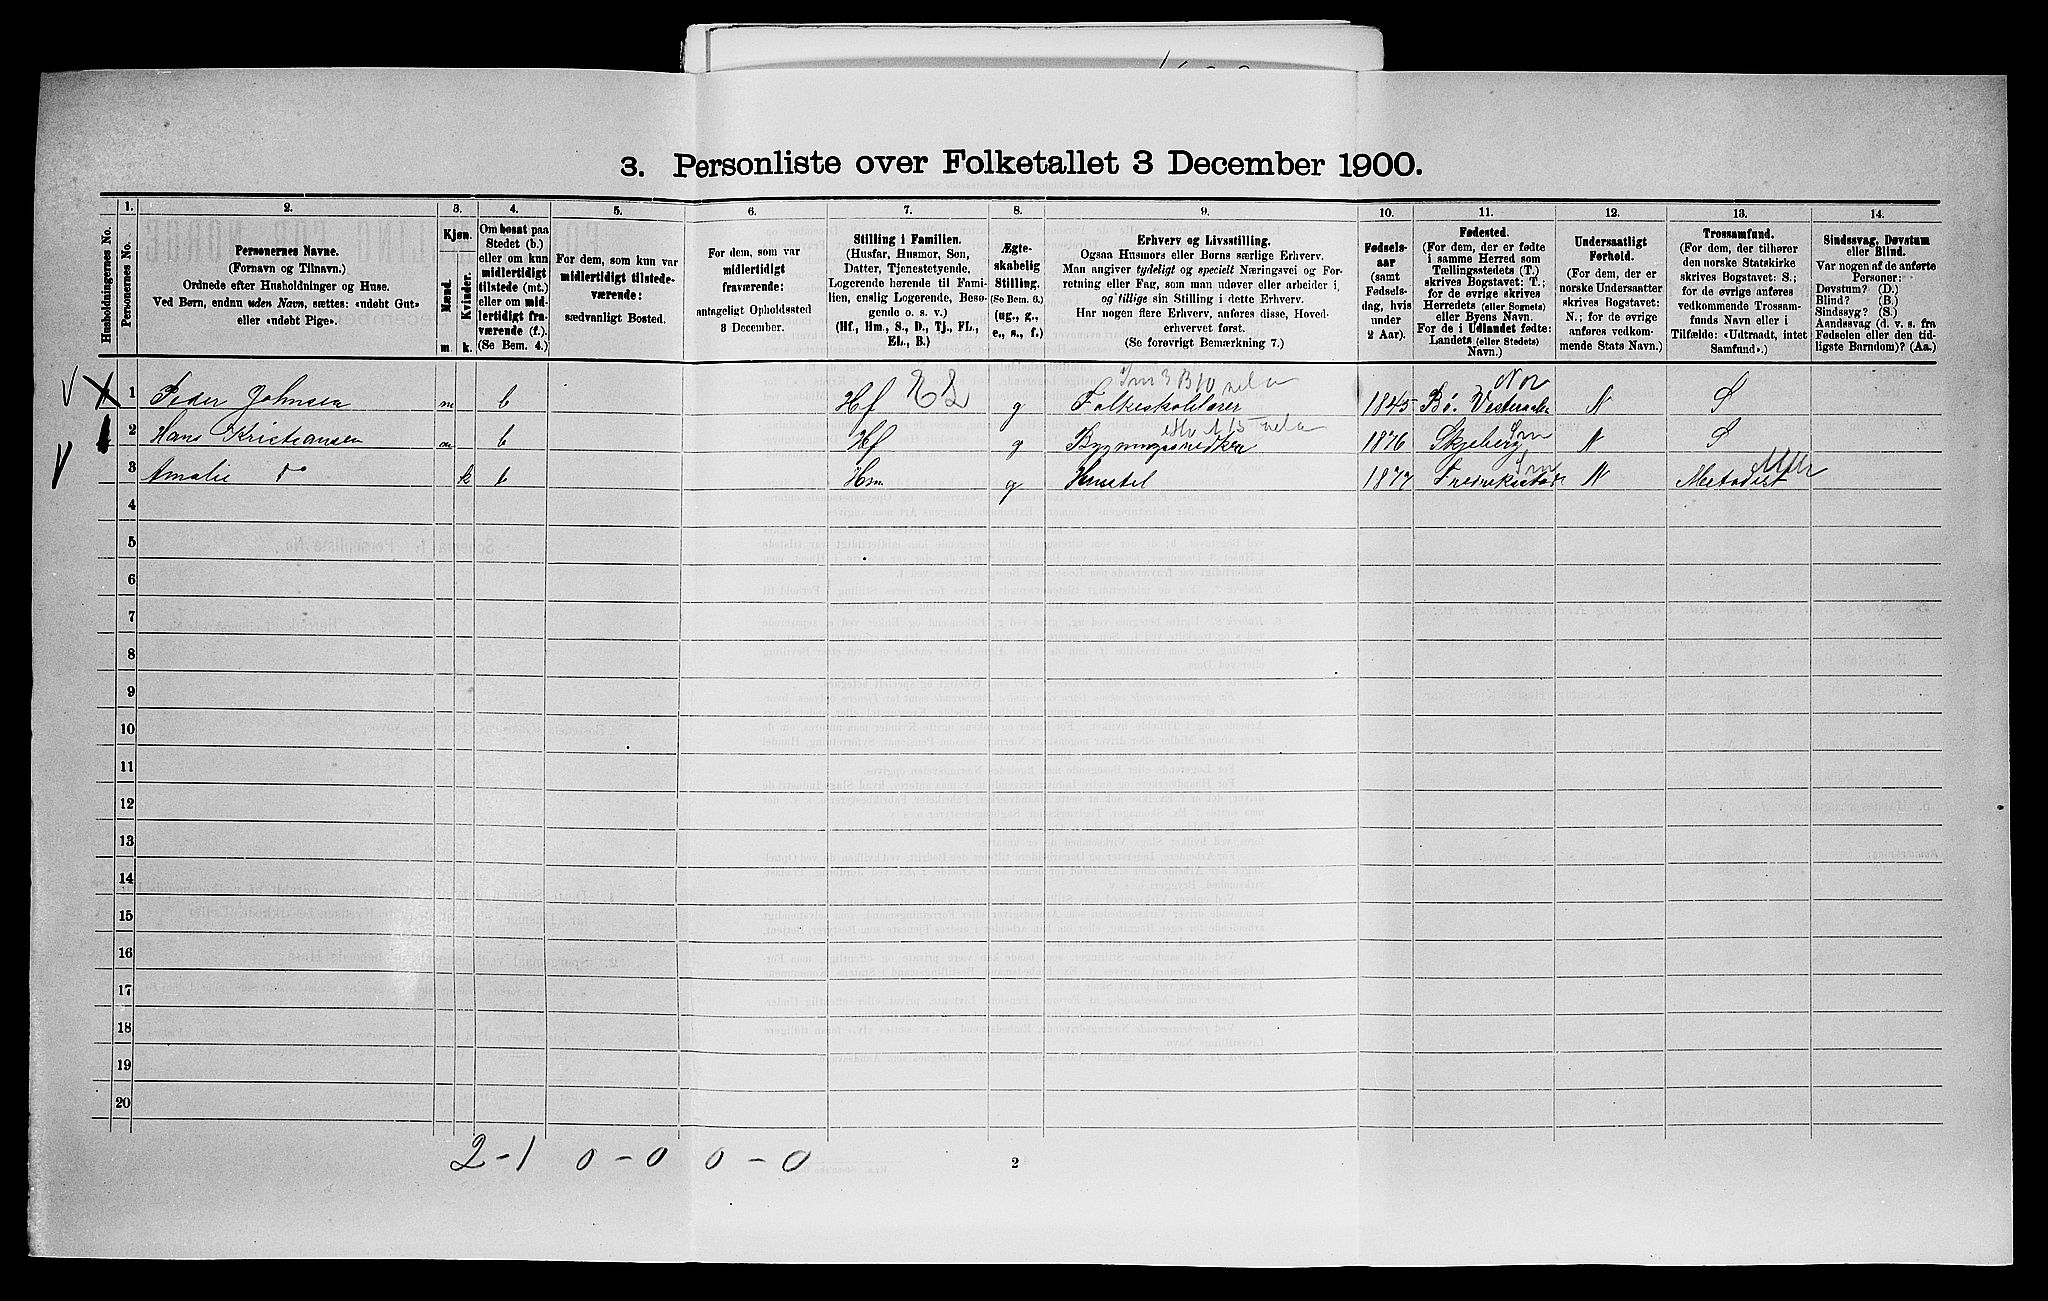 3. Personliste over Folketallet 3 December 1900.
Husholdningernes No.
1.
Personernes No.
2.
Personernes Navne.
(Fornavn og Tilnavn.)
Ordnede efter Husholdninger og Huse.
Ved Børn, endnu uden Navn, sættes: «udøbt Gut»
eller «udøbt Pige».
3.
Kjøn.
Mænd.
Kvinder.
m.
k.
4.
Om bosat paa
Stedet (b.)
eller om kun
midlertidigt
tilstede (mt.)
eller om mid-
lertidigt fra-
værende (f.).
(Se Bem. 4.)
5.
For dem, som kun var
midlertidigt tilstede-
værende:
sædvanligt Bosted.
6.
For dem, som var
midlertidigt
fraværende:
antageligt Opholdssted
3 December.
7.
Stilling i Familien.
(Husfar, Husmor, Søn,
Datter, Tjenestetyende,
Logerende hørende til Fami-
lien, enslig Logerende, Besø-
gende o. s. v.)
(Hf., Hm., S., D., Tj., FL.,
EL., B.)
8.
Ægte-
skabelig
Stilling.
(Se Bem. 6.)
(ug., g.,
e., s., f.)
9.
Erhverv og Livsstilling.
Ogsaa Husmors eller Børns særlige Erhverv.
Man angiver tydeligt og specielt Næringsvei og For-
retning eller Fag, som man udøver eller arbeider i,
og tillige sin Stilling i dette Erhverv.
Har nogen flere Erhverv, anføres disse, Hoved-
erhvervet først.
(Se forøvrigt Bemærkning 7.)
10.
Fødsels-
aar
(samt
Fødsels-
dag, hvis
under
2 Aar).
11.
Fødested.
(For dem, der er fødte
i samme Herred som
Tællingsstedets (T.)
skrives Bogstavet: T.;
for de øvrige skrives
Herredets (eller Sognets)
eller Byens Navn.
For de i Udlandet fødte:
Landets (eller Stedets)
Navn.)
12.
Undersaatligt
Forhold.
(For dem, der er
norske Undersaatter
skrives Bogstavet:
N.; for de øvrige
anføres vedkom-
mende Stats Navn.)
13.
Trossamfund.
(For dem, der tilhører
den norske Statskirke
skrives Bogstavet: S.;
for de øvrige anføres
vedkommende Trossam-
funds Navn eller i
Tilfælde: «Udtraadt, intet
Samfund».)
14.
Sindssvag, Døvstum
eller Blind.
Var nogen af de anførte
Personer:
Døvstum? (D.)
Blind? (B.)
Sindssyg? (S.)
Aandssvag (d. v. s. fra
Fødselen eller den tid-
ligste Barndom)? (Aa.)
1 Peder Johnsen m b Hf EL g Folkeskolelærer 1845 Bø. Vesteraalen Nor N S
2 Hans Kristiansen m b Hf g Bygningssnedker 1876 Skjeberg Sm N S
3 Amalie do k b Hm g Husstel 1877 Fredrikstad Sm N Metodist Mth
4
5
6
7
8
9
10
11
12
13
14
15
16
17
18
19
20
2-1 0-0 0-0
2